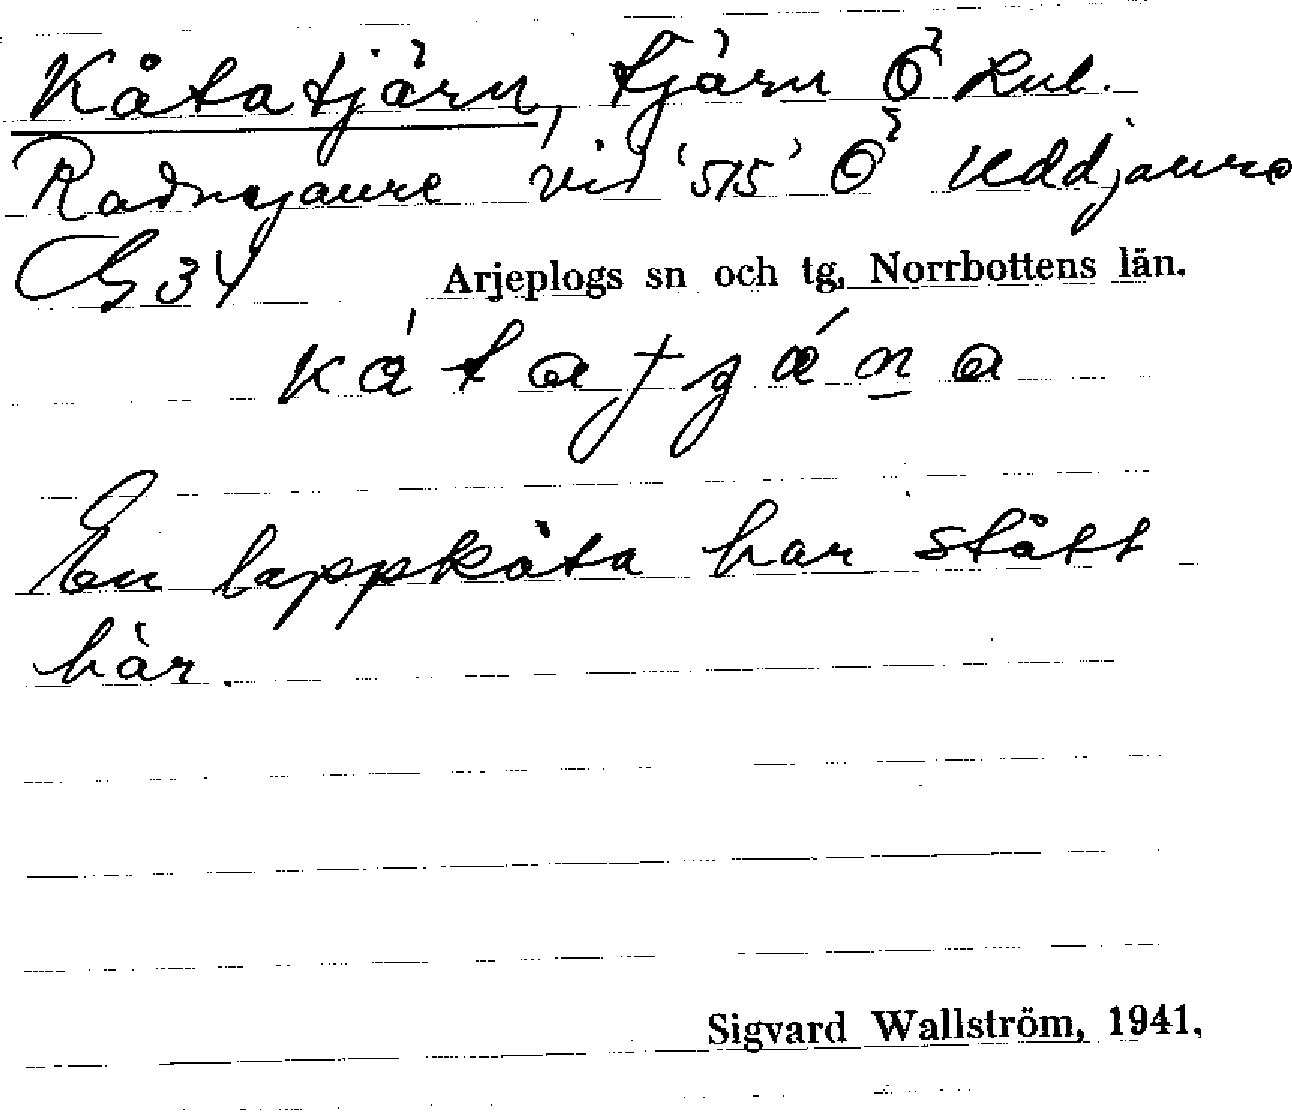 Kåtatjärn, tjärn Ö Rul.
Radnejaure vid '515' Ö Uddjaure
G 34 Arjeplogs sn och tg, Norrbottens län.
En lappkåta har stått
här.
Sigvard Wallström, 1941.